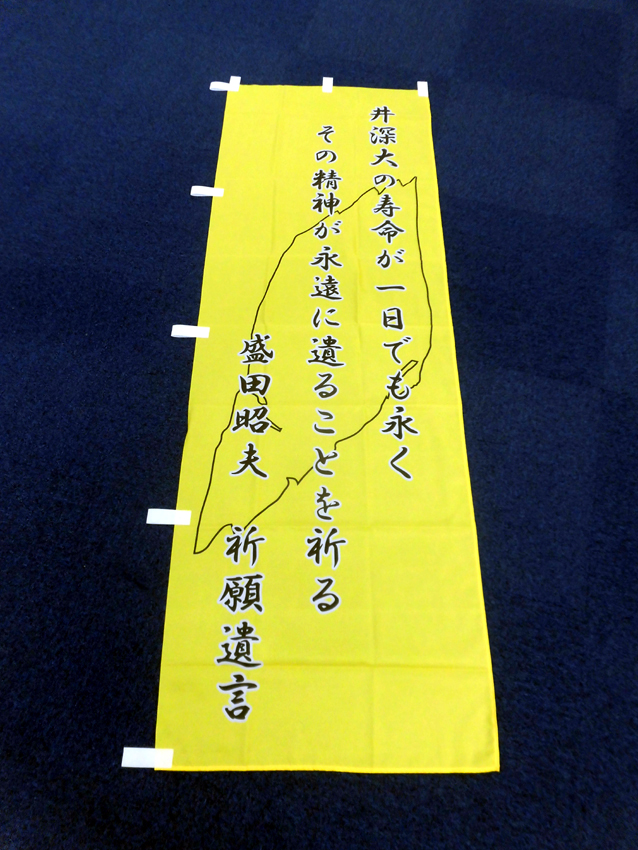 井深大の寿命が一日でも永く
その精神が永遠に遺ることを祈る
盛田昭夫 祈願遺言